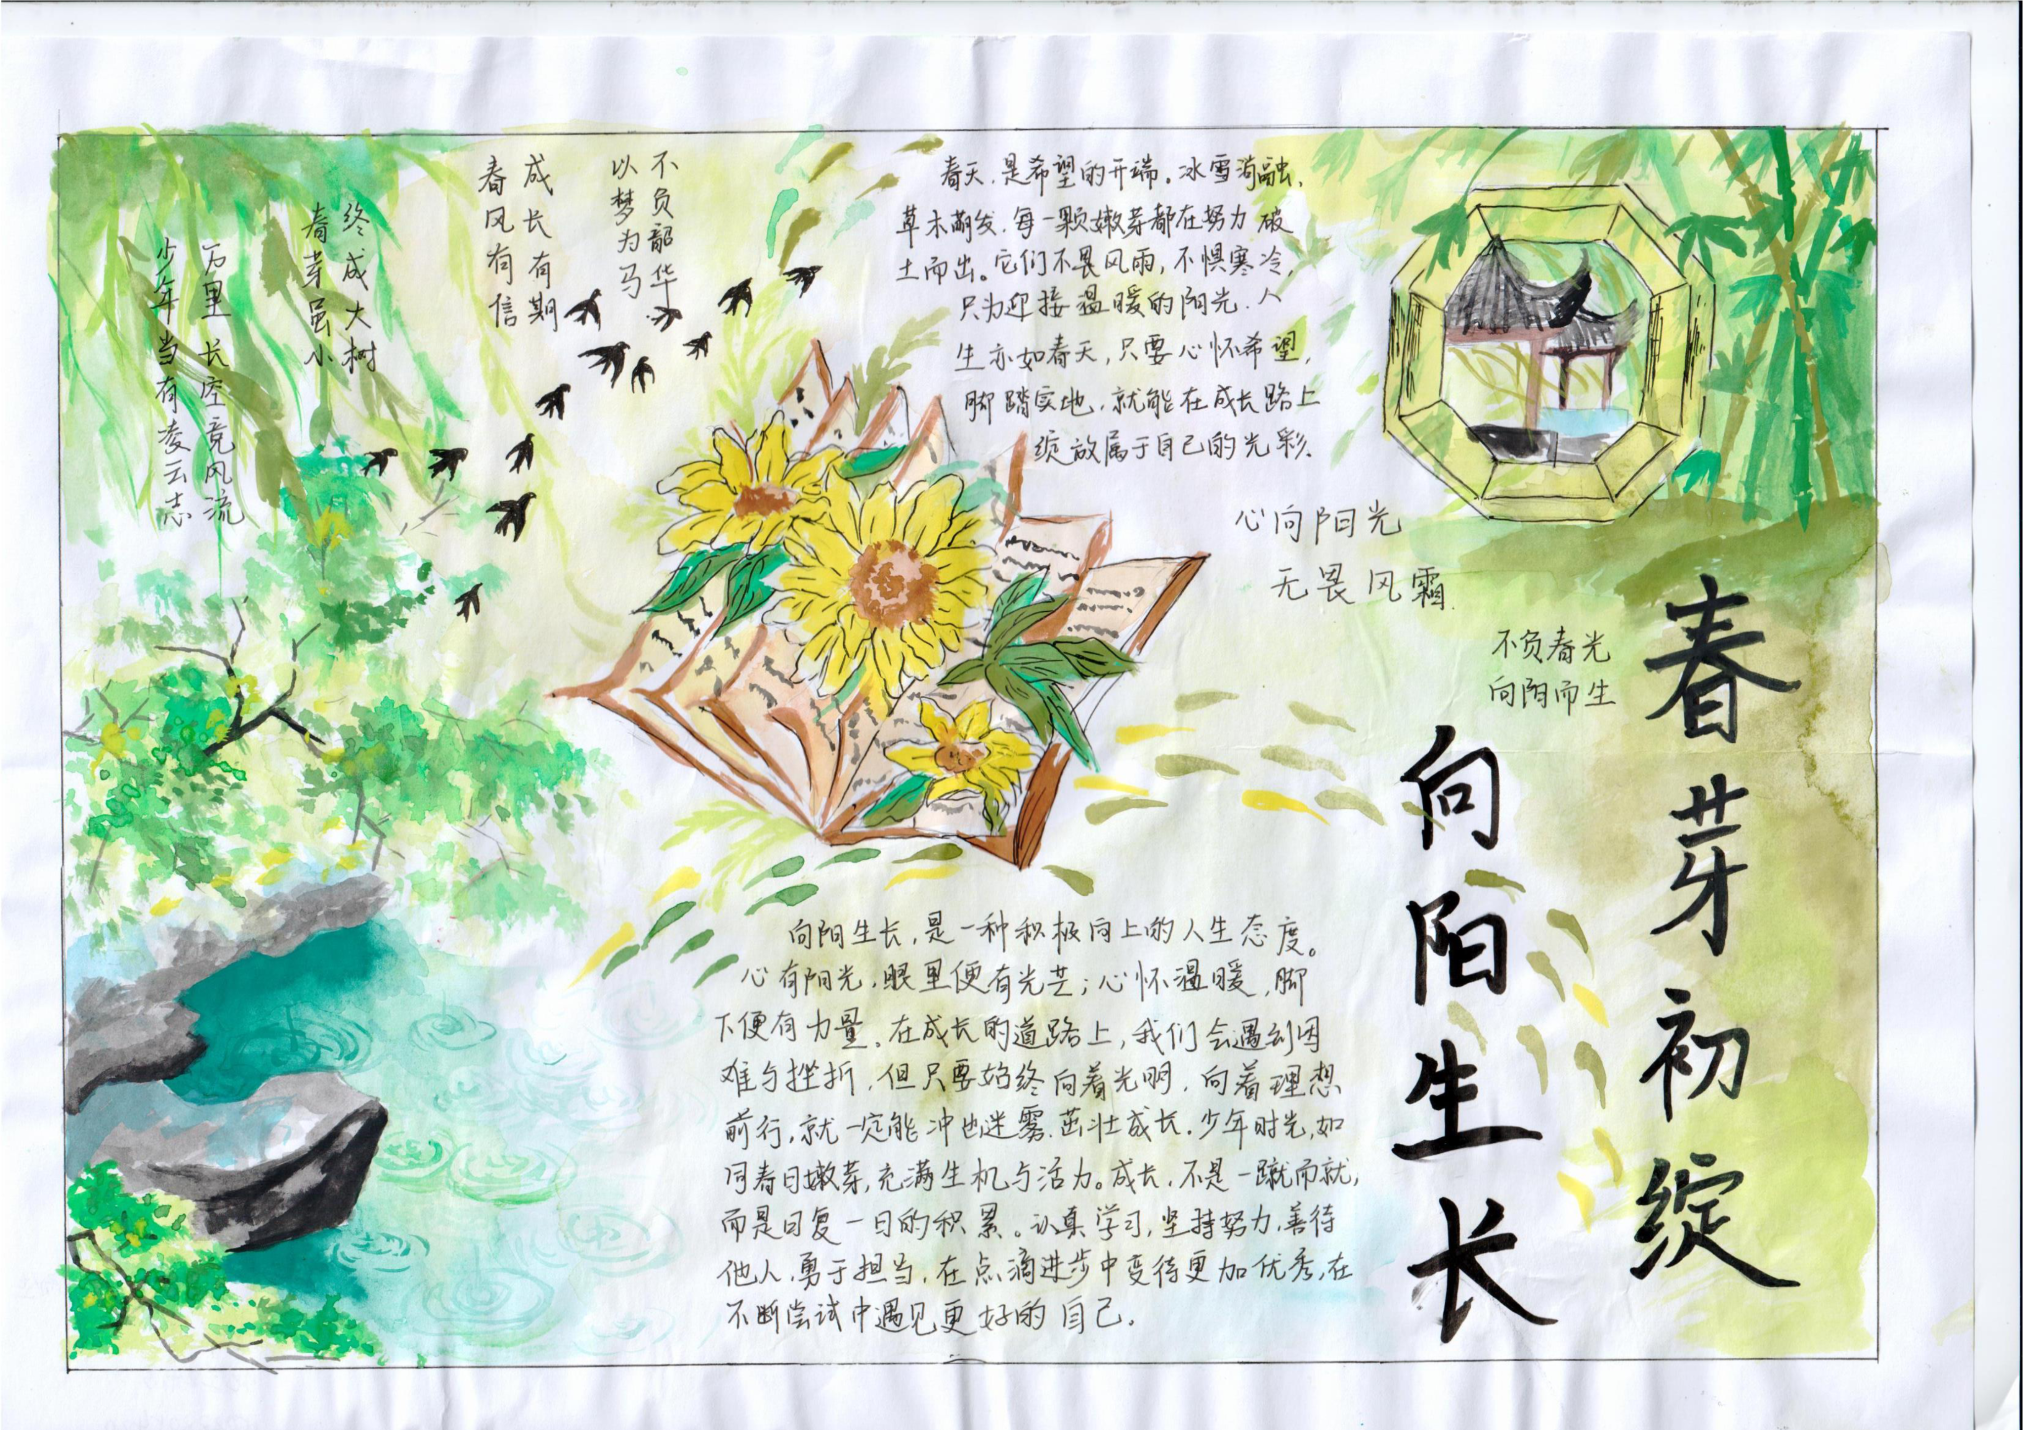 春芽初绽
向阳生长
不负春光
向阳而生
心向阳光
无畏风霜
春天,是希望的开端。冰雪消融,
草木萌发,每一颗嫩芽都在努力破
土而出。它们不畏风雨,不惧寒冷,
只为迎接温暖的阳光.人
生亦如春天,只要心怀希望,
脚踏实地,就能在成长路上
绽放属于自己的光彩.
不负韶华
以梦为马
成长有期
春风有信
终成大树
春芽虽小
万里长空竞风流
少年当有凌云志
向阳生长,是一种积极向上的人生态度。
心有阳光,眼里便有光芒;心怀温暖,脚
下便有力量。在成长的道路上,我们会遇到困
难与挫折,但只要始终向着光明,向着理想
前行,就一定能冲也迷雾.茁壮成长.少年时光,如
同春日嫩芽,充满生机与活力。成长,不是一蹴而就,
而是日复一日的积累。认真学习,坚持努力,善待
他人,勇于担当,在点滴进步中变待更加优秀,在
不断尝试中遇见更好的自己.